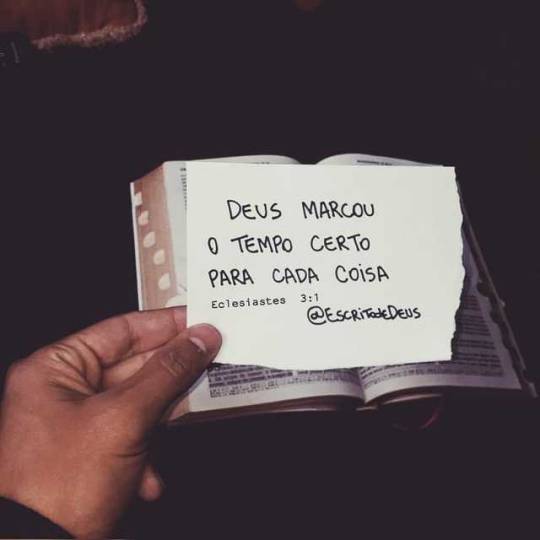 DEUS MARCOU
O TEMPO CERTO
PARA CADA COISA
Eclesiastes 3:1
@ESCRITOdeDEUS